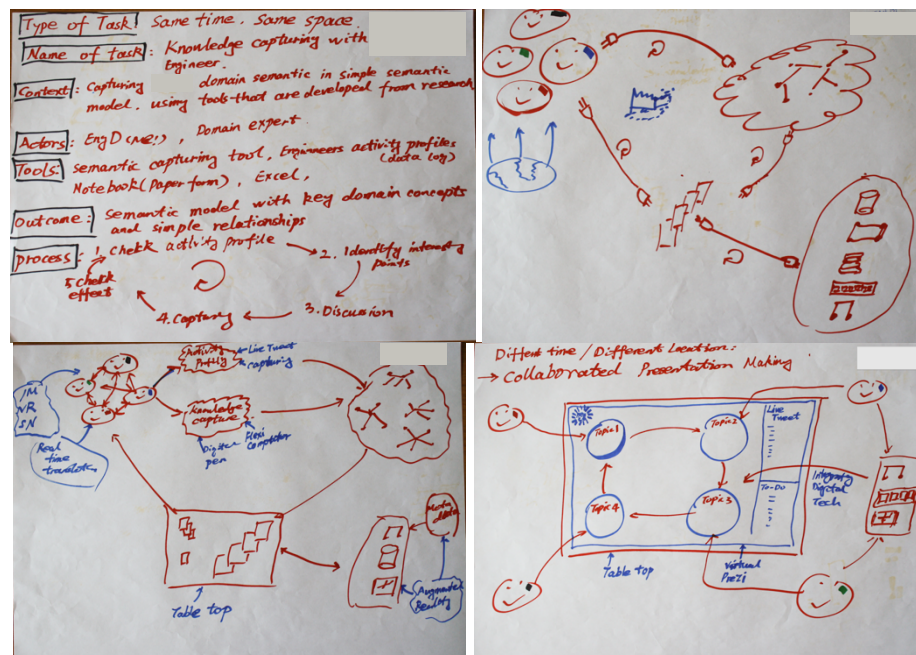 Type of Task: Same time, Same space
Name of task: Knowledge capturing with
Engineer.
Context: Capturing domain semantic in simple semantic
model, using tools that are developed from research
Actors: EngD (me!), Domain expert.
Tools: Semantic capturing tool, Engineers activity profiles
(data log)
Notebook (Paper form), Excel,
Outcome: Semantic model with key domain concepts
and simple relationships
process: 1. Chekk activity profile
2. Identify interesting
points
3. Discussion
4. Capturing
5. Chekk
effect
Activity
Live Tweet
capturing
IM
NR
SN
Knowledge
capture
Digital
pen
Flexi
Computer
Real
time
Meta
data
Augmented
Reality
Table top
Different time / Different Location:
→ Collaborated Presentation Making
Topic 1
Topic 2
Live
Tweet
Topic 4
Topic 3
To-Do
Digital
Tech
Table top
Virtual
Prezi